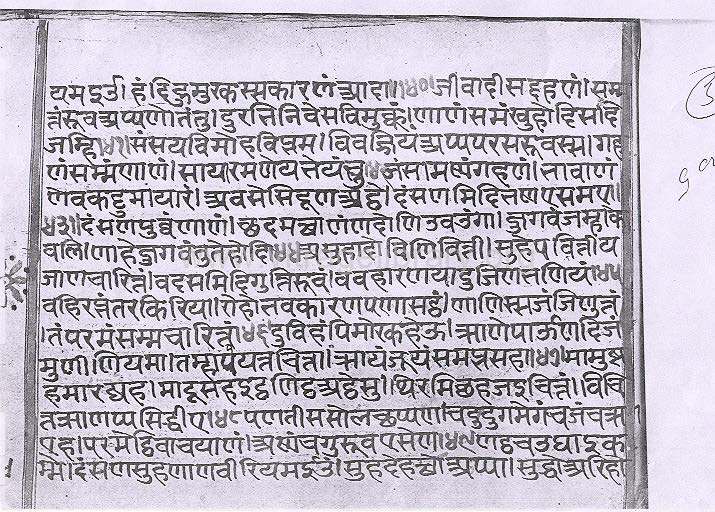 यमइउ।हं।दिहुमुरकस्सकारणंआदा।।४०।जीवादीसद्दहणं।सम्म
त्तंरूवअप्पणोतंतु।दुरभिनिवेसविमुक्कं।णाणंसमंखुहोदिसदि
जम्हि।४१।संसयविमोहविब्भम।विवज्जियंअप्पपरसरूवस्स।गह
णंसम्मंणाणं।सायारमणेयभेयंचु।४२जंसामण्णंगहणं।भावाणं
णेवकट्टुमायारं।अवसेसिदूणअट्ठे।दंसणमिदिभण्णएसमए।
४३।।दंसणपुव्वंणाणं।छदमच्छाणंणदोणिउवउगा।जुगवंजम्हाके
वलि।णाहेजुगवंतुतेदोवि४४असुहादोविणिवित्ती।सुहेपवित्तीय
जाणचारित्तं।वदसमिदिगुत्तिरूवं।ववहारणयादुजिणभणियं।४५
वहिरब्भंतरकिरिया।रोहोभवकारणपणासट्ठं।णाणिस्सजंजिणुत्तं
।तंपरमंसम्मचारित्तं।४६दुविहंपिमोरकहेऊ।झाणेपाऊणदिजं
मुणीणियमा।तम्हापयत्तचित्ता।झायंजूयंसमब्भसहा।४७।मामुझ
हमारज्जह।मादूसहइट्ठणिट्ठअट्ठेसु।थिरमिच्छहजइचित्तं।विचि
त्तझाणप्पसिद्धीए।४८पणतीससोलछप्पण।चदुदुगमेगंचजंचझा
एह।परमेट्ठिवाचयाणं।अण्णंचगुरूवएसेण।४९णट्ठचउघाइक
म्मो।दंसणसुहणाणवीरियमइउ।सुहदेहच्छोअप्पा।सुद्धोअरिहो